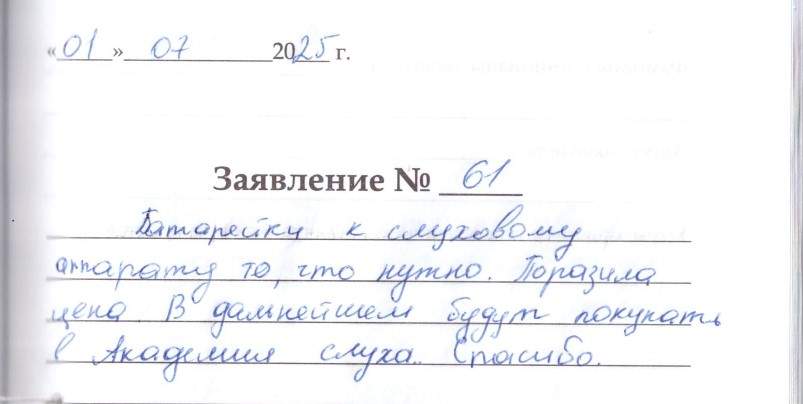 «01» 07 2025 г.
Заявление № 61
Батарейки к слуховому
аппарату то, что нужно. Поразила
цена. В дальнейшем будут покупать
в Академия слуха. Спасибо.